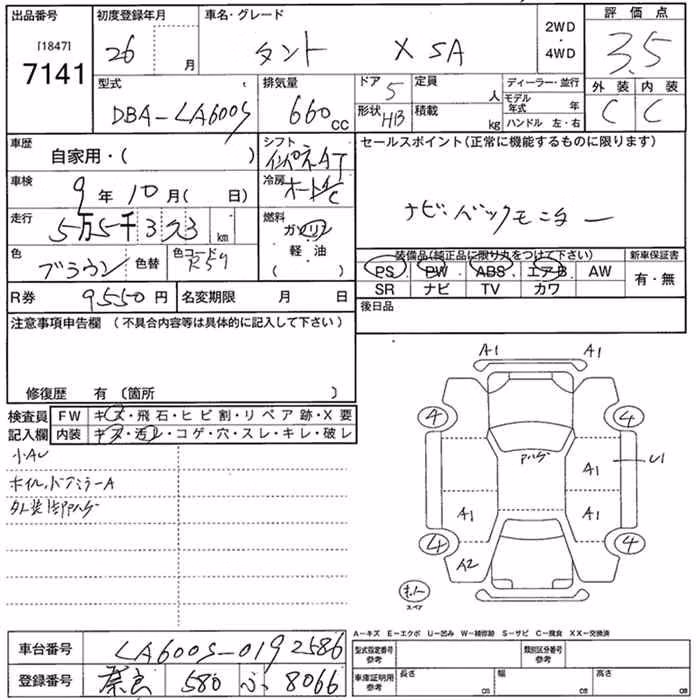 出品番号
[1847]
7141
初度登録年月
26 月
車名・グレード
タント X SA
2WD
・
4WD
評価点
3.5
型式
DBA-LA600S
排気量
660 cc
ドア 5
形状 HB
定員 人
積載 kg
ディーラー・並行
モデル年式 年
ハンドル 左・右
外装 内装
C C
車歴
自家用・( )
シフト
インパネAT
車検
9年 10月( 日)
冷房
オートA/C
走行
5万5千3 km
燃料
ガソリン
軽油
( )
色
ブラウン 色替
色コード
R59
R券 9550円
名変期限 月 日
セールスポイント(正常に機能するものに限ります)
ナビ・バックモニター
装備品(純正品に限り丸をつけて下さい)
PS PW ABS エアB AW
SR ナビ TV カワ
新車保証書
有・無
後日品
注意事項申告欄 (不具合内容等は具体的に記入して下さい)
修復歴 有 (箇所 )
検査員
記入欄
FW キズ・飛石・ヒビ割・リペア跡・X要
内装 キズ・汚レ・コゲ・穴・スレ・キレ・破レ
小AU
ホイル、ドアミラーA
A1 A1
4 4
アハゲ
A1 U1
A1 A1
4 4
A2
スペア
A-キズ E-エクボ U-凹み W-補修跡 S-サビ C-腐食 XX-交換済
車台番号 LA600S-0192586
登録番号 奈良 580 ふ 8066
型式指定番号
参考
類別区分番号
参考
車庫証明用
参考
長さ cm
幅 cm
高さ cm